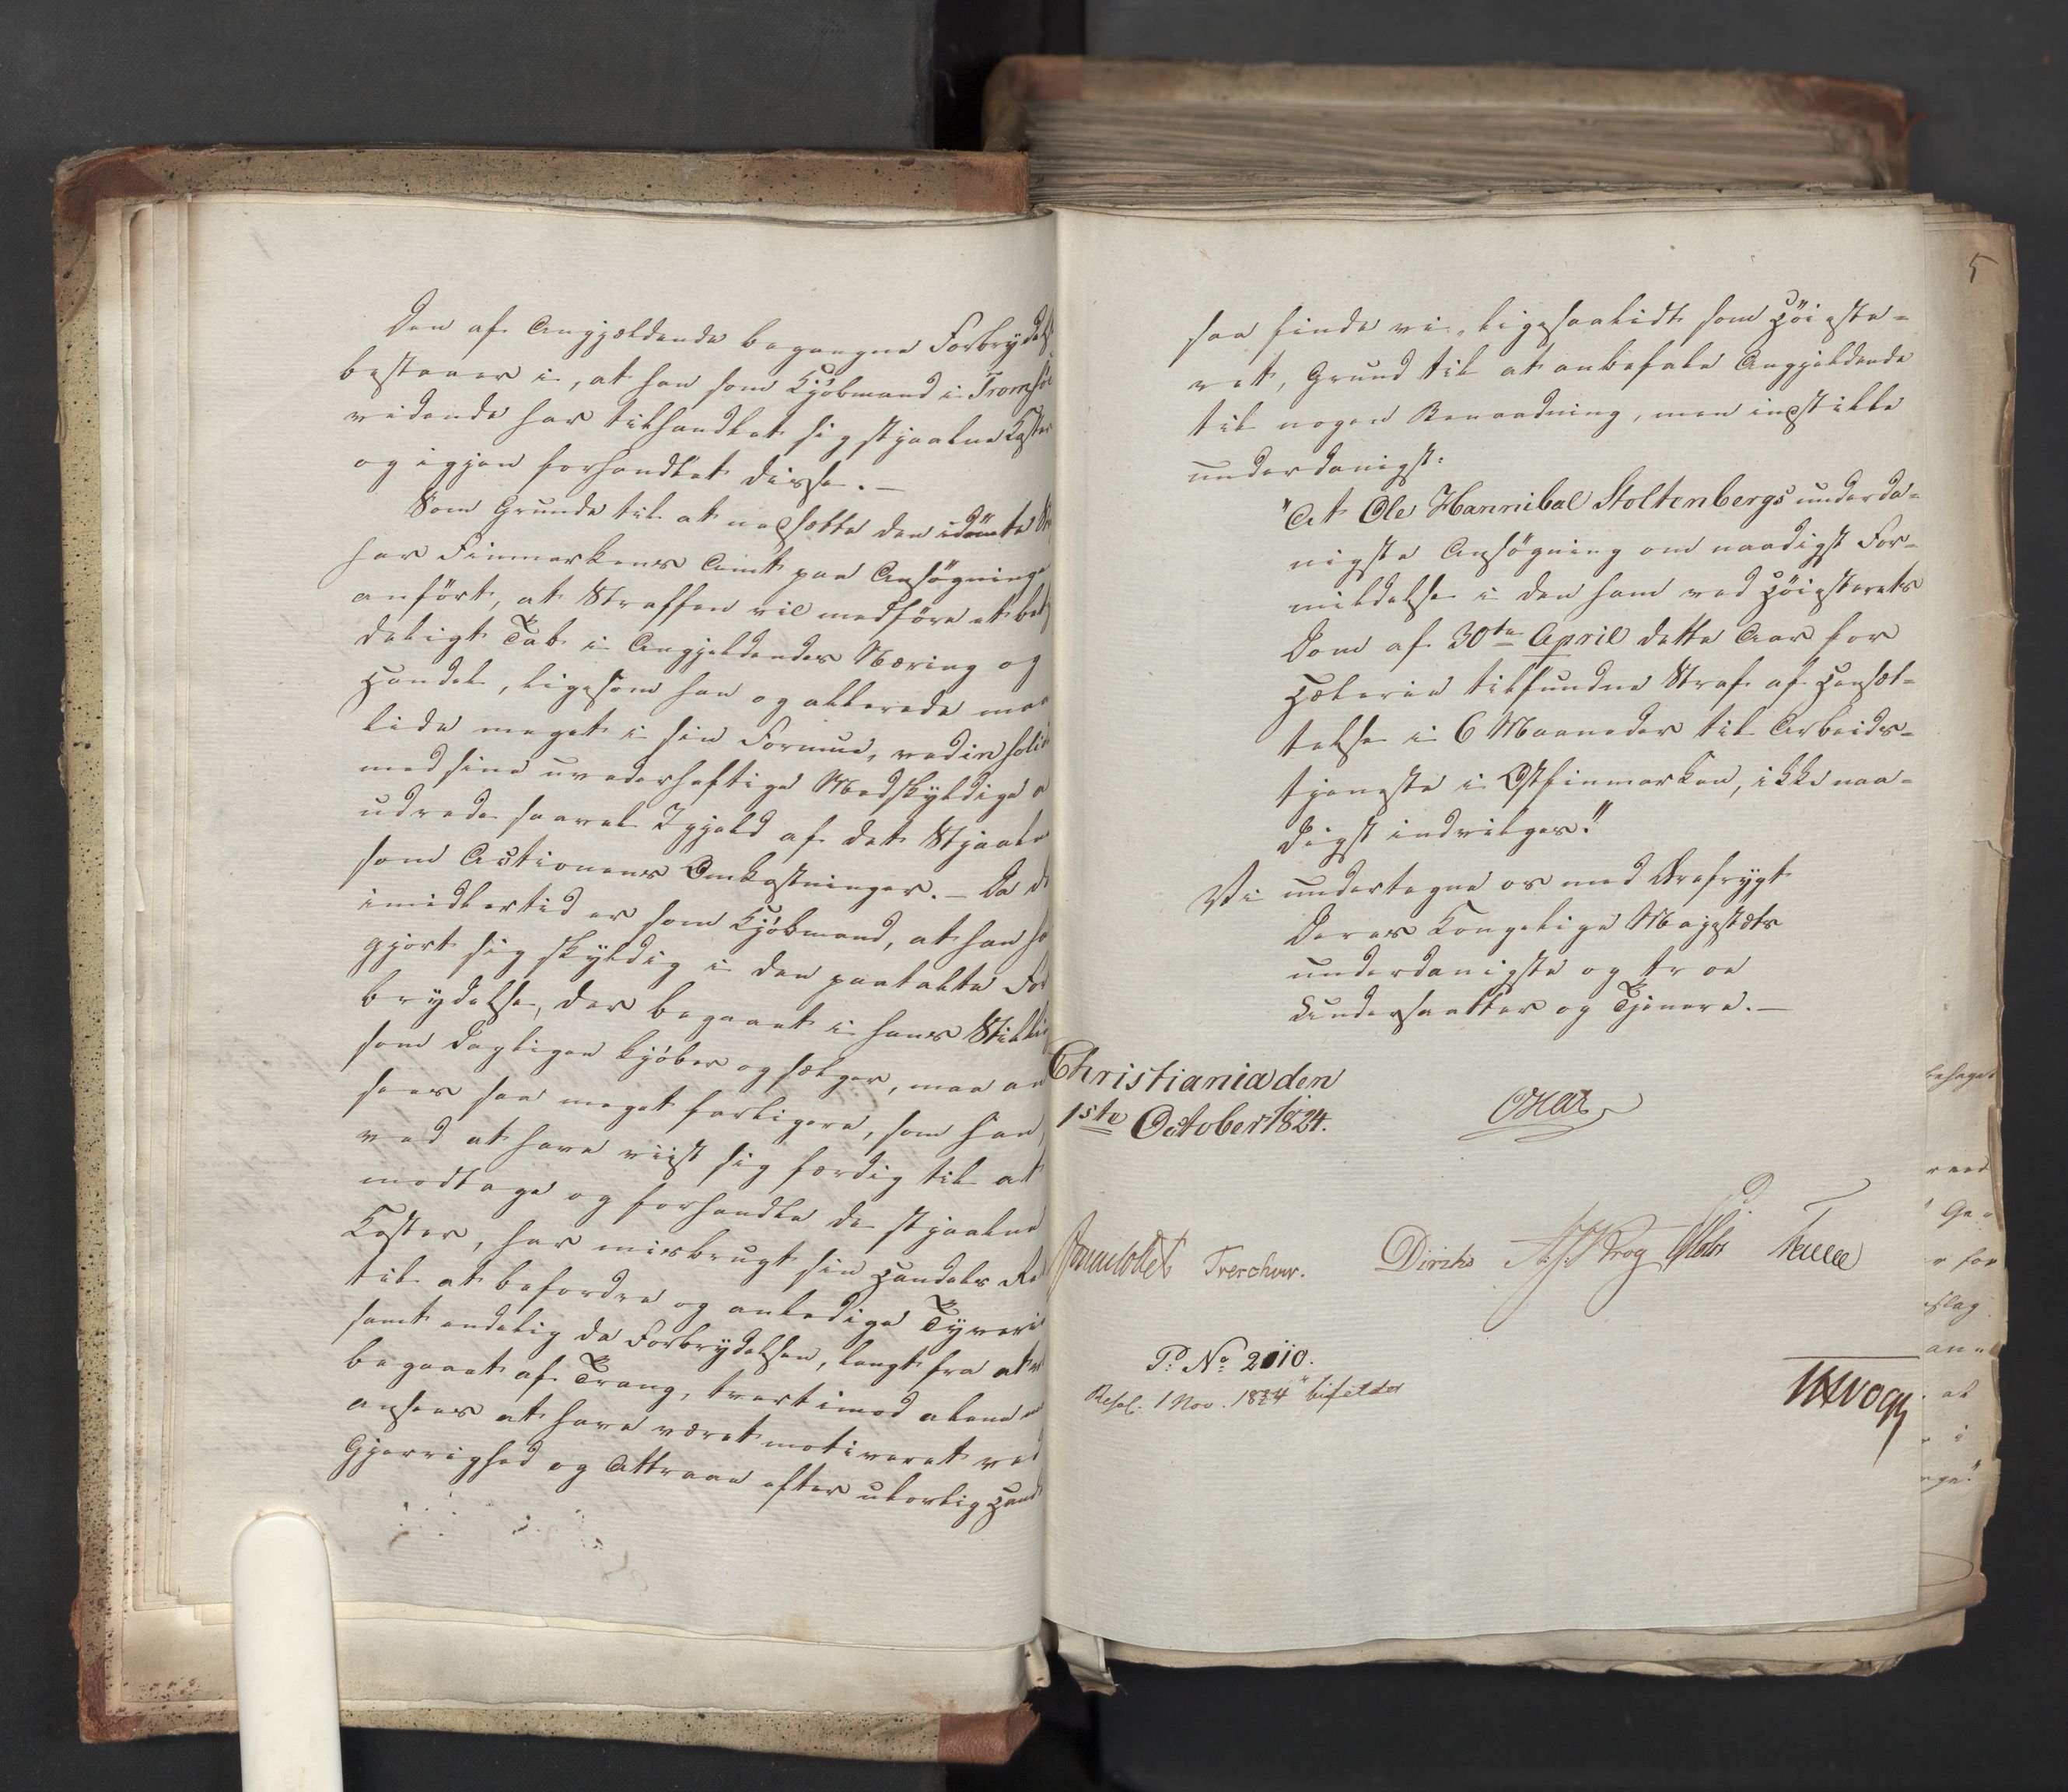 Den af Angjældende begangne Forbrydelse
bestaaer i, at han som Kjöbmand i Tromsöe
vidende har tilhandlet sig stjaalne Koster
og igjen forhandlet disse. —
Som Grunde til at nedsætte den idømte
har Finmarkens Amt paa Ansögningen
anfört, at Straffen vil medföre et bety-
deligt Tab i Angjeldendes Næring og
Handel, ligesom han og allerede maa
lide meget i sin Formue, ved in solidum
med sine uvederheftige Medskyldige at
udrede saavel Igjeld af det Stjaalne
som Actionens Omkostninger. — Da det
imidlertid er som Kjöbmand, at han har
gjort sig skyldig i den paatalte For-
brydelse, der begaaet i hans Stilling
som dagligen kjöber og sælger, maa an-
sees saa meget farligere, som han,
ved at have viist sig færdig til at
modtage og forhandle de stjaalne
Koster, har misbrugt sin Handels Ret
til at befordre og anledige Tyverie
samt endelig da Forbrydelsen, langt fra at være
begaaet af Trang, tvertimod alene maa
ansees at have været motiveret ved
Gjerrighed og Attraae efter ulovlig Handel
5
saa finde vi, ligesaalidt som Höieste-
ret, Grund til at anbefale Angjeldende
til nogen Benaadning, men indstille
underdanigst:
"At Ole Hannibal Stoltenbergs underda-
nigste Ansögning om naadigst For-
mildelse i den ham ved Höiesterets
Dom af 30te April dette Aar for
Hæleri tilfundne Straf af Hensæt-
telse i 6 Maaneder til Arbeids-
tjeneste i Ostfinmarken, ikke naa-
digst indvilges."
Vi undertegne os med Ærefrygt
Deres Kongelige Majestæts
underdanigste og troe
Undersaatter og Tjenere. —
Christiania den
1ste October 1824.
Sommerfeldt Treschow. Diriks Krog Fasting
P: No 2010.
Resol. 1 Nov. 1824 bifaldes